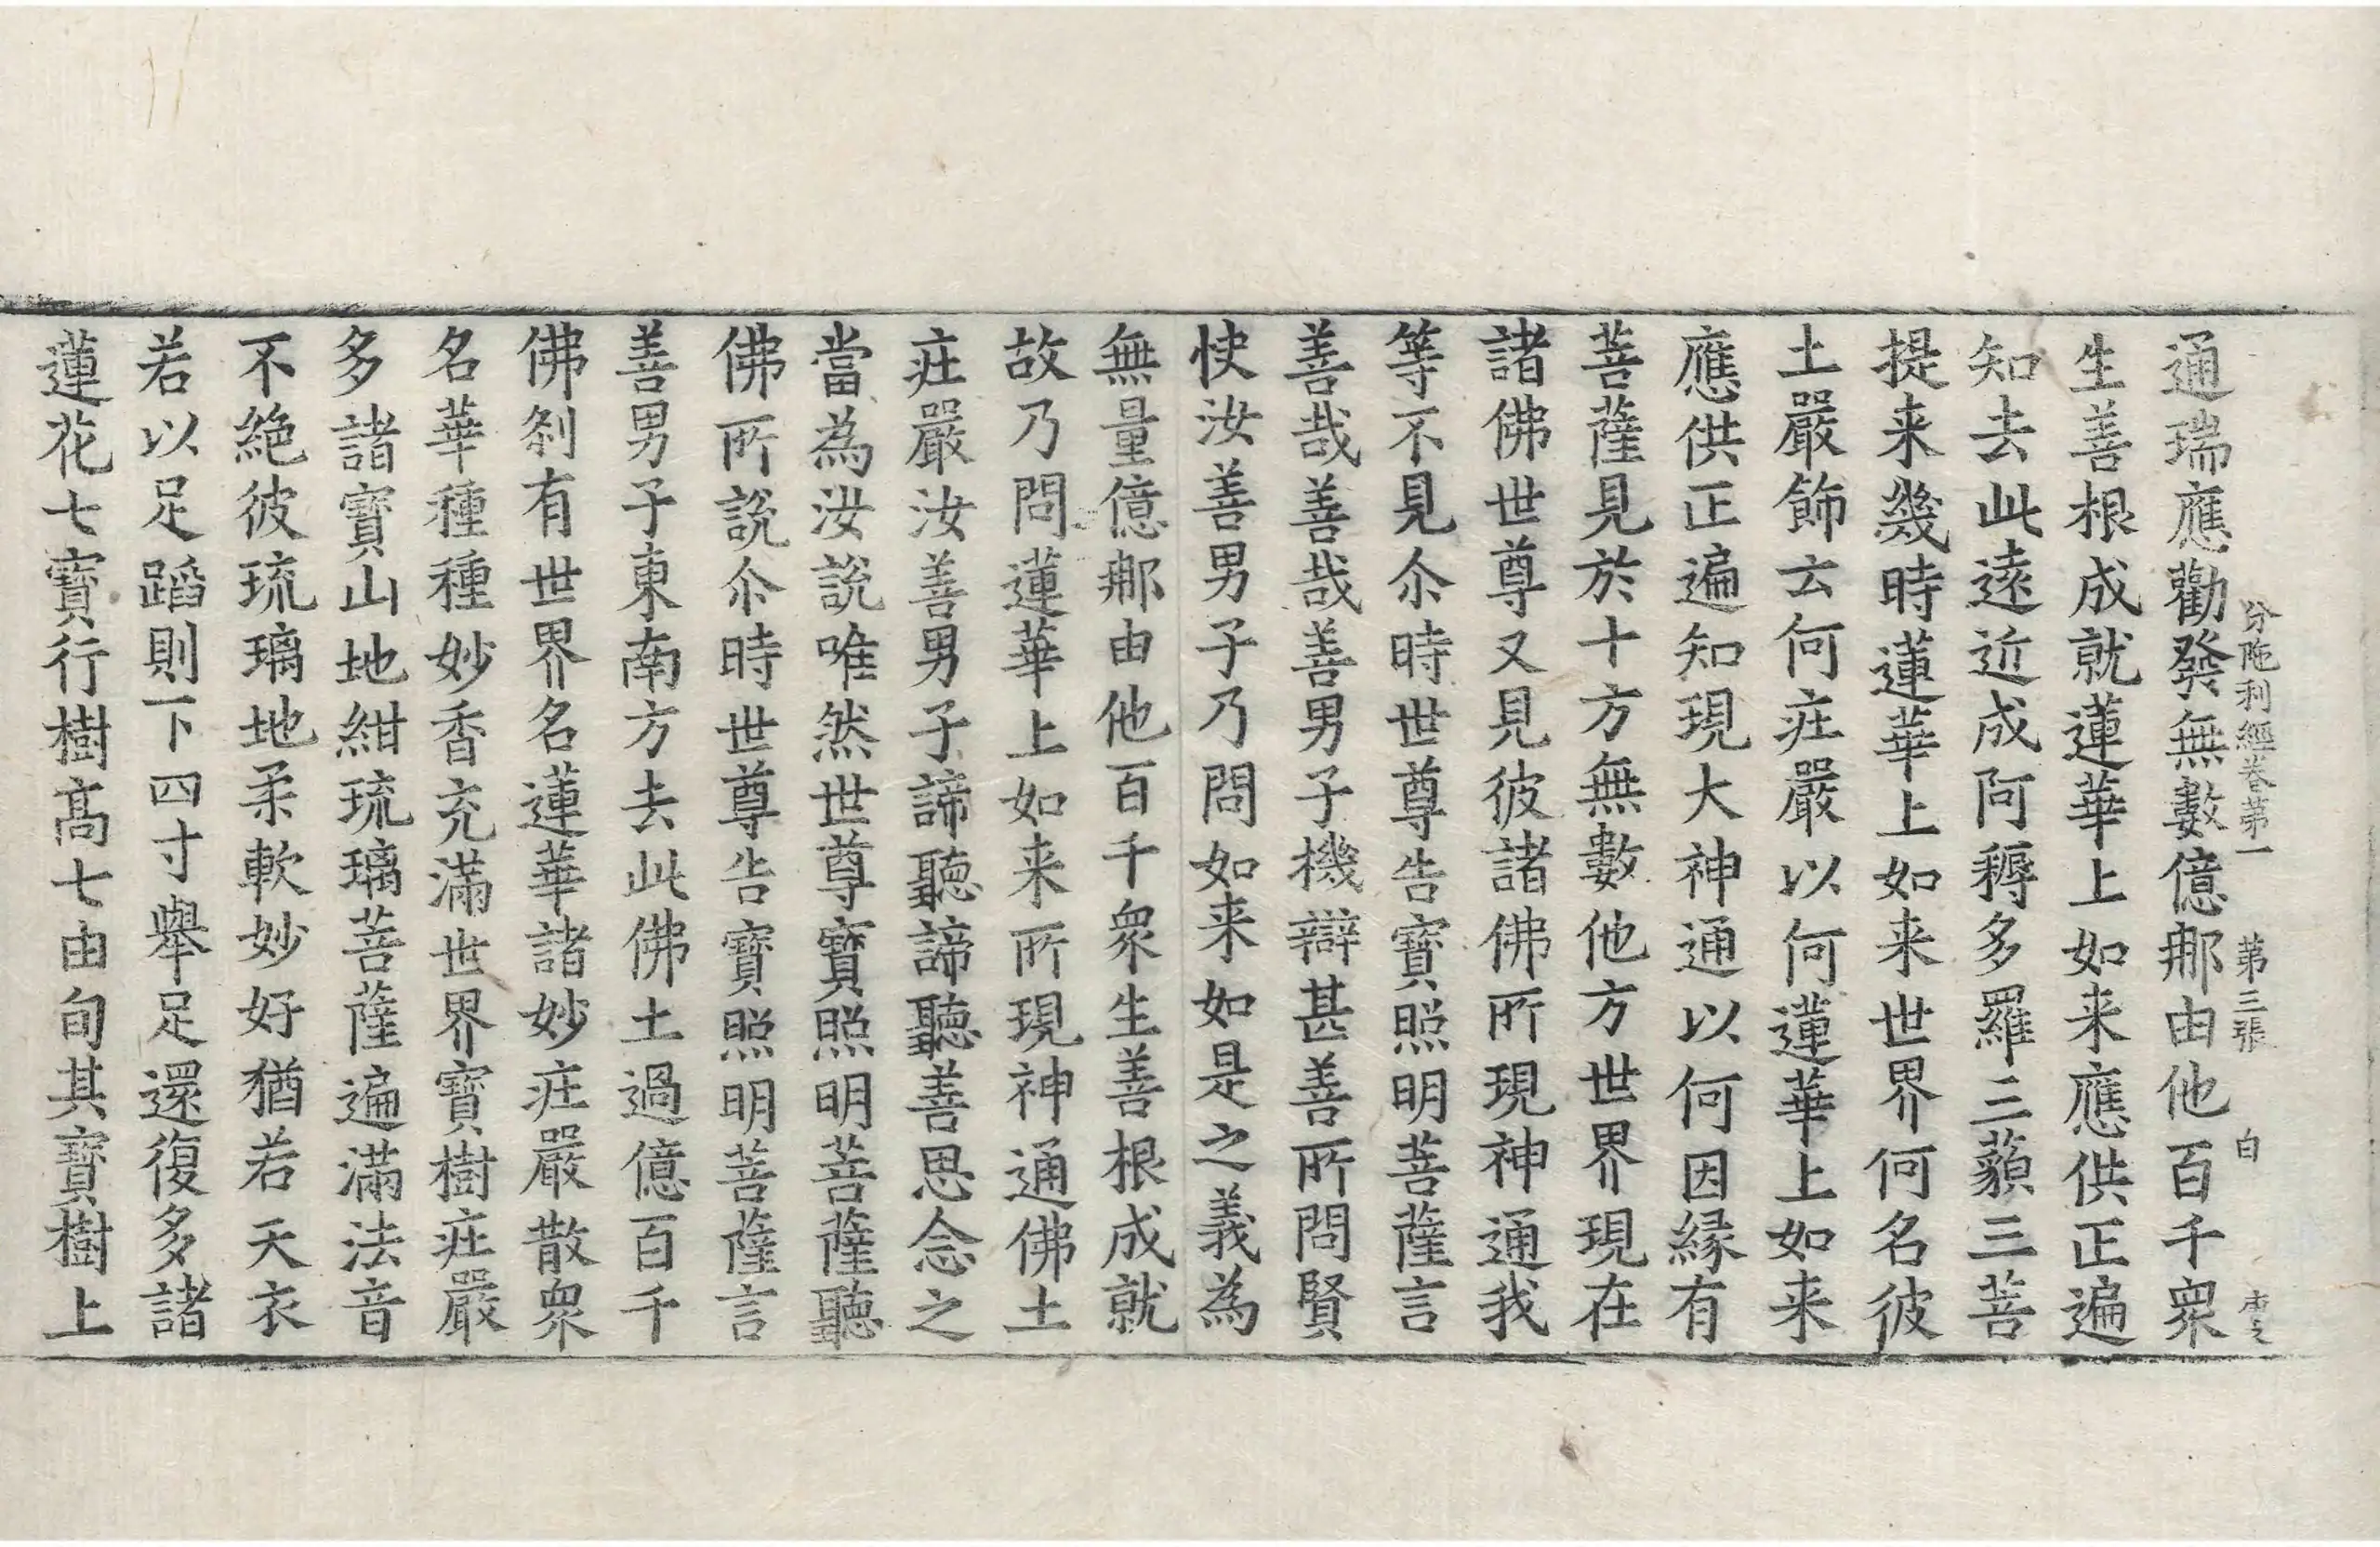 分陁利經卷第一　第三張　白
通瑞應勸發無數億那由他百千衆
生善根成就蓮華上如来應供正遍
知去此遠近成阿耨多羅三藐三菩
提来幾時蓮華上如来世界何名彼
土嚴飾云何莊嚴以何蓮華上如来
應供正遍知現大神通以何因縁有
菩薩見於十方無數他方世界現在
諸佛世尊又見彼諸佛所現神通我
等不見尒時世尊告寶照明菩薩言
善哉善哉善男子機辯甚善所問賢
快汝善男子乃問如来如是之義為
無量億那由他百千衆生善根成就
故乃問蓮華上如来所現神通佛土
莊嚴汝善男子諦聽諦聽善思念之
當為汝說唯然世尊寶照明菩薩聽
佛所說尒時世尊告寶照明菩薩言
善男子東南方去此佛土過億百千
佛刹有世界名蓮華諸妙莊嚴散衆
名華種種妙香充滿世界寶樹莊嚴
多諸寶山地紺琉璃菩薩遍滿法音
不絶彼琉璃地柔軟妙好猶若天衣
若以足蹈則下四寸舉足還復多諸
蓮花七寶行樹髙七由旬其寶樹上